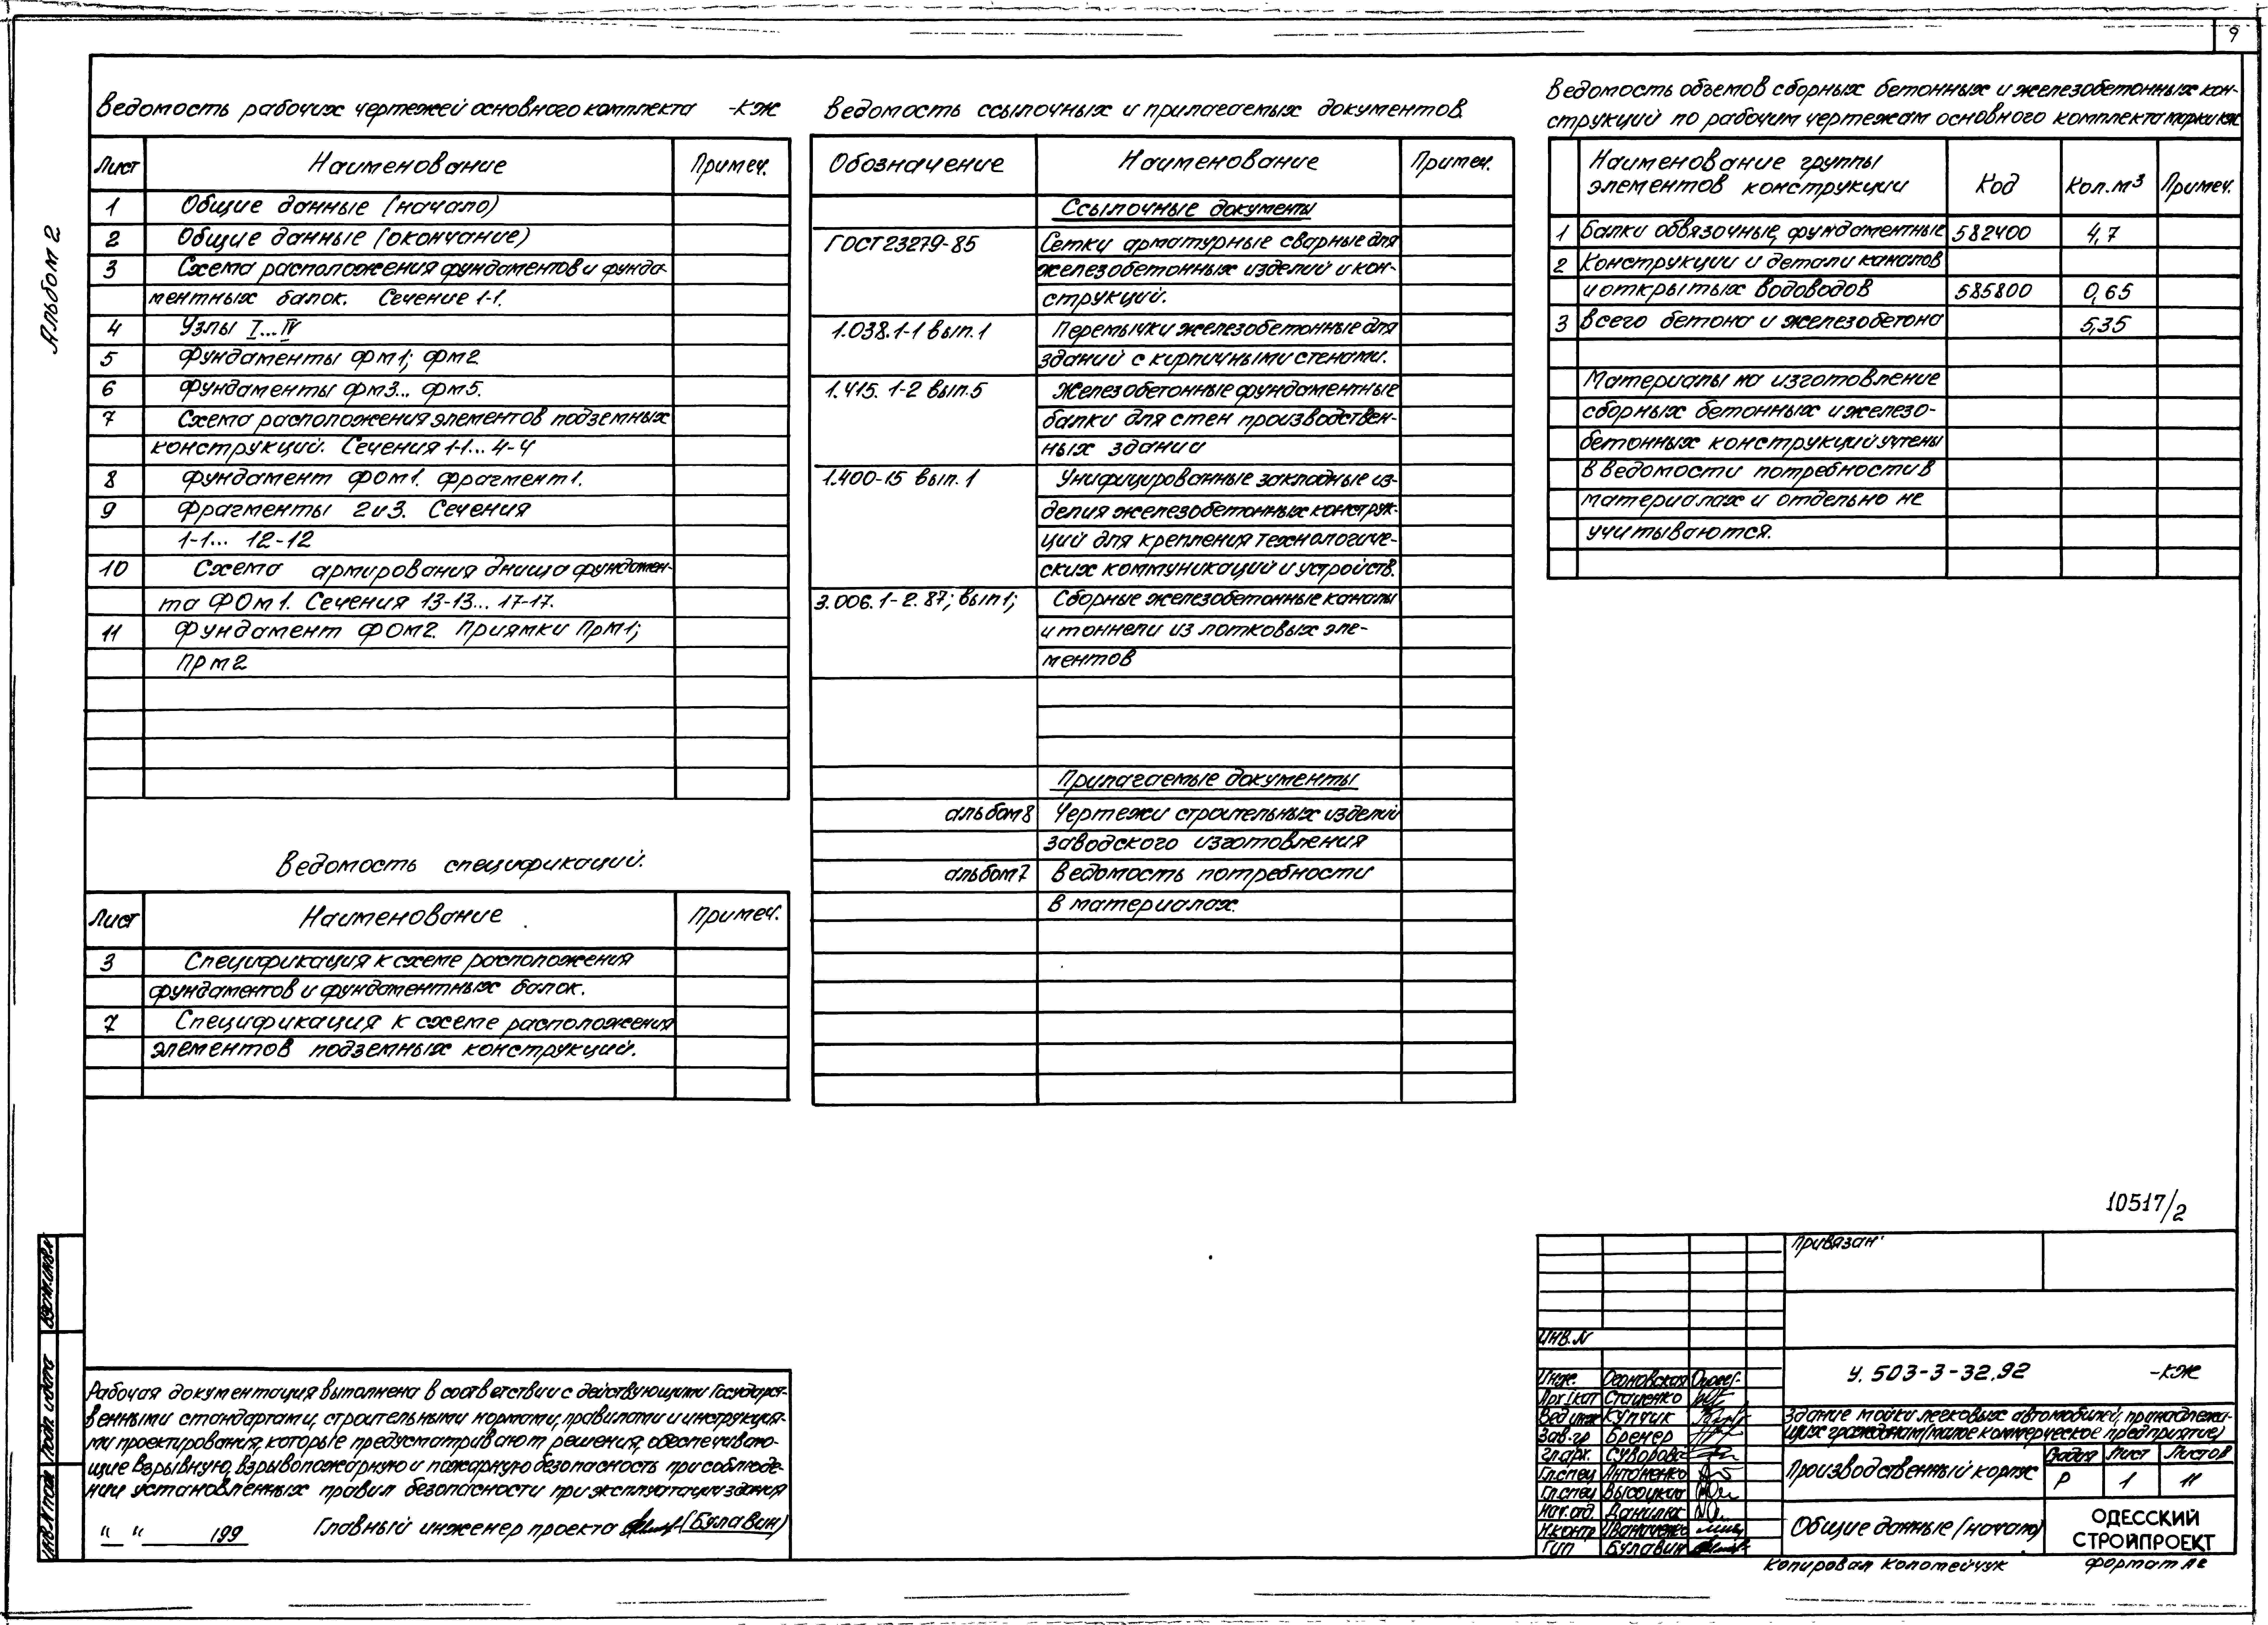 9
Альбом 2
Ведомость рабочих чертежей основного комплекта -КЖ
Лист Наименование Примеч.
1 Общие данные (начало)
2 Общие данные (окончание)
3 Схема расположения фундаментов и фунда-
ментных балок. Сечение 1-1.
4 Узлы I...IV
5 Фундаменты Фм1; Фм2
6 Фундаменты Фм3... Фм5.
7 Схема расположения элементов подземных
конструкций. Сечения 1-1... 4-4
8 Фундамент ФОм1. Фрагмент 1.
9 Фрагменты 2 и 3. Сечения
1-1... 12-12
10 Схема армирования днища фундамен-
та ФОм1. Сечения 13-13... 17-17.
11 Фундамент ФОм2. Приямки Прм1;
Прм2
Ведомость спецификаций.
Лист Наименование Примеч.
3 Спецификация к схеме расположения
фундаментов и фундаментных балок.
7 Спецификация к схеме расположения
элементов подземных конструкций.
Ведомость ссылочных и прилагаемых документов
Обозначение Наименование Примеч.
Ссылочные документы
ГОСТ 23279-85 Сетки арматурные сварные для
железобетонных изделий и кон-
струкций.
1.038.1-1 вып.1 Перемычки железобетонные для
зданий с кирпичными стенами.
1.415.1-2 вып.5 Железобетонные фундаментные
балки для стен производствен-
ных здании
1.400-15 вып.1 Унифицированные закладные из-
делия железобетонных конструк-
ций для крепления технологиче-
ских коммуникаций и устройств.
3.006.1-2.87; вып1; Сборные железобетонные каналы
и тоннели из лотковых эле-
ментов
Прилагаемые документы
альбом 8 Чертежи строительных изделий
заводского изготовления
альбом 7 Ведомость потребности
в материалах.
Ведомость объемов сборных бетонных и железобетонных кон-
струкций по рабочим чертежам основного комплекта марки КЖ
Наименование группы
элементов конструкции Код Кол.м³ Примеч.
1 Балки обвязочные, фундаментные 582400 4,7
2 Конструкции и детали каналов
и открытых водоводов 585800 0,65
3 Всего бетона и железобетона 5,35
Материалы на изготовление
сборных бетонных и железо-
бетонных конструкций учтены
в ведомости потребности в
материалах и отдельно не
учитываются.
Взам.инв.N
Подп. и дата
Инв.N подл
Рабочая документация выполнена в соответствии с действующими Государст-
венными стандартами, строительными нормами, правилами и инструкция-
ми проектирования, которые предусматривают решения, обеспечиваю-
щие взрывную, взрывопожарную и пожарную безопасность при соблюде-
нии установленных правил безопасности при эксплуатации здания
" " 199 Главный инженер проекта (Булавин)
10517/2
Привязан
Инв.N
У. 503-3-32.92 -КЖ
Инж.
Арх Iкат Стаценко
Вед инж Купчик
Зав.гр Бренер
Гл.арх. Суворова
Гл.спец Антоненко
Гл.спец Высоцкий
Нач.отд. Данилюк
Н.контр
Гип Булавин
Здание мойки легковых автомобилей, принадлежа-
щих гражданам (малое коммерческое предприятие)
Производственный корпус
Стадия Лист Листов
Р 1 11
Общие данные (начало)
ОДЕССКИЙ
СТРОЙПРОЕКТ
Копировал Колотейчук Формат А2